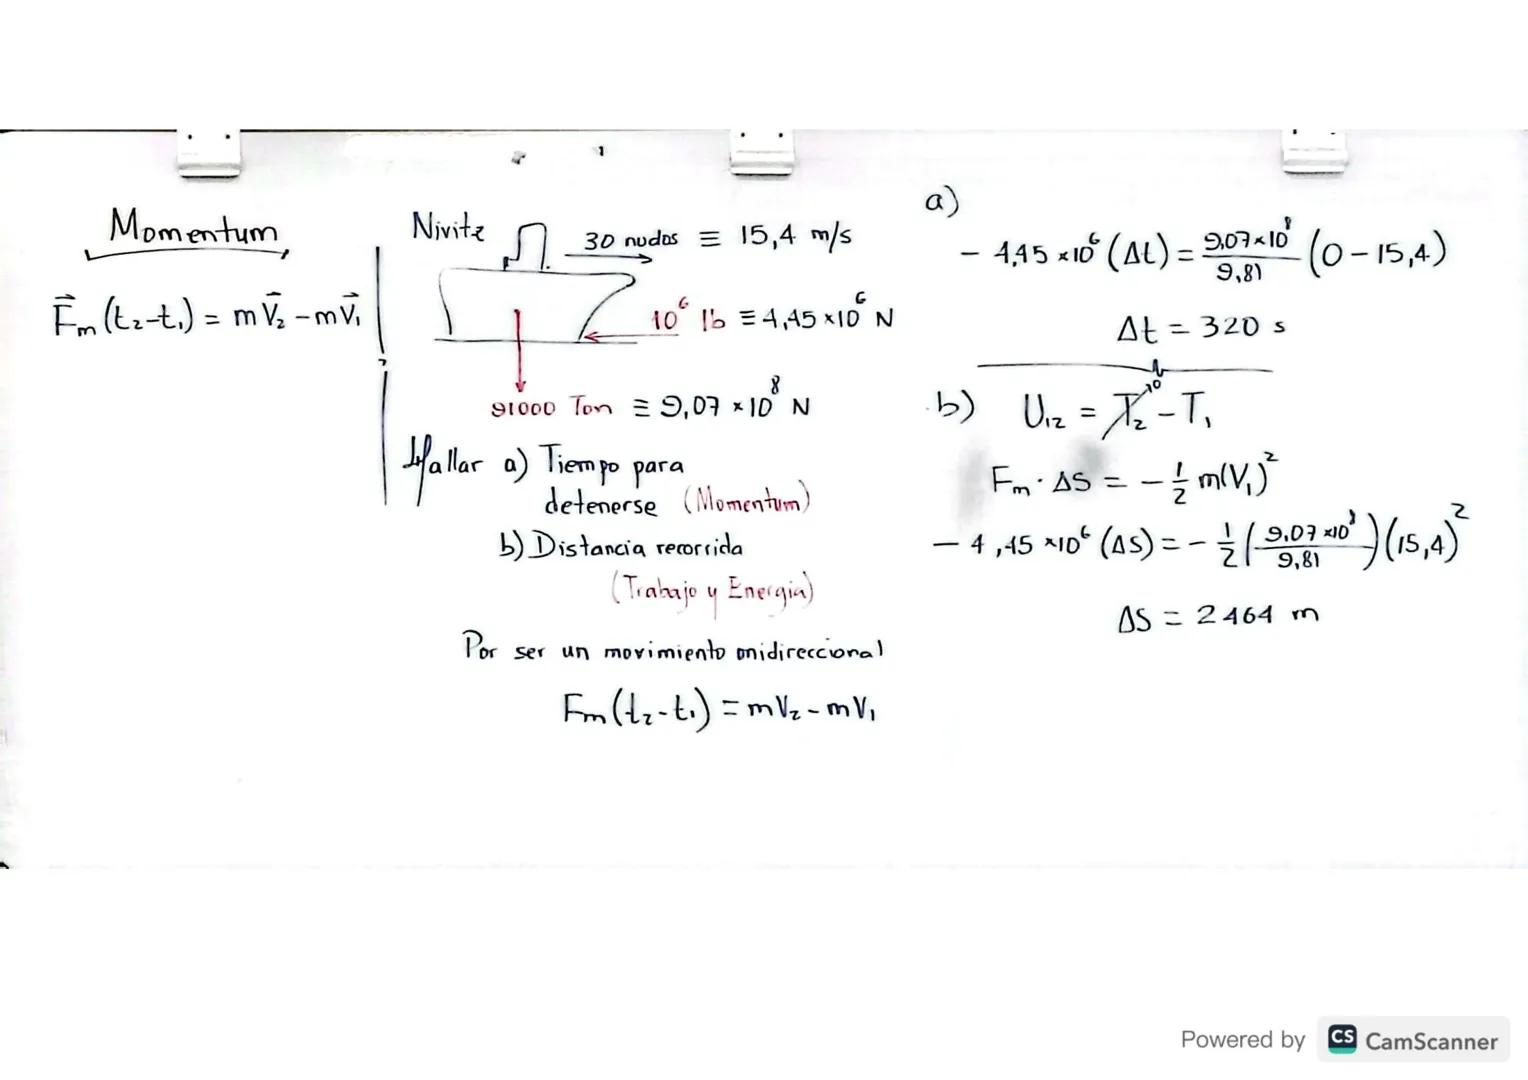 Momentum
F⃗m (t₂-t₁) = mV⃗₂ - mV⃗₁
Nivitz
30 nudos ≡ 15,4 m/s
10⁶ lb ≡ 4,45 ×10⁶ N
91000 Ton ≡ 9,07 ×10⁸ N
Hallar a) Tiempo para
detenerse (Momentum)
b) Distancia recorrida
(Trabajo y Energia)
Por ser un movimiento unidireccional
Fm (t₂-t₁) = mV₂ - mV₁
a)
- 4,45 ×10⁶ (Δt) = 9,07×10⁸/9,81 (0-15,4)
Δt = 320 s
b) U₁₂ = T₂ - T₁
Fm · ΔS = - 1/2 m(V₁)²
- 4,45 ×10⁶ (ΔS) = - 1/2 (9,07×10⁸/9,81)(15,4)²
ΔS = 2464 m
Powered by CS CamScanner